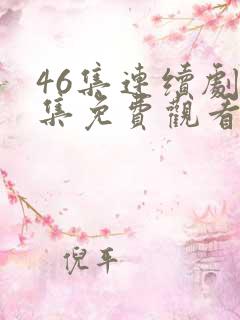 46集連續劇
集免費觀看
倪平